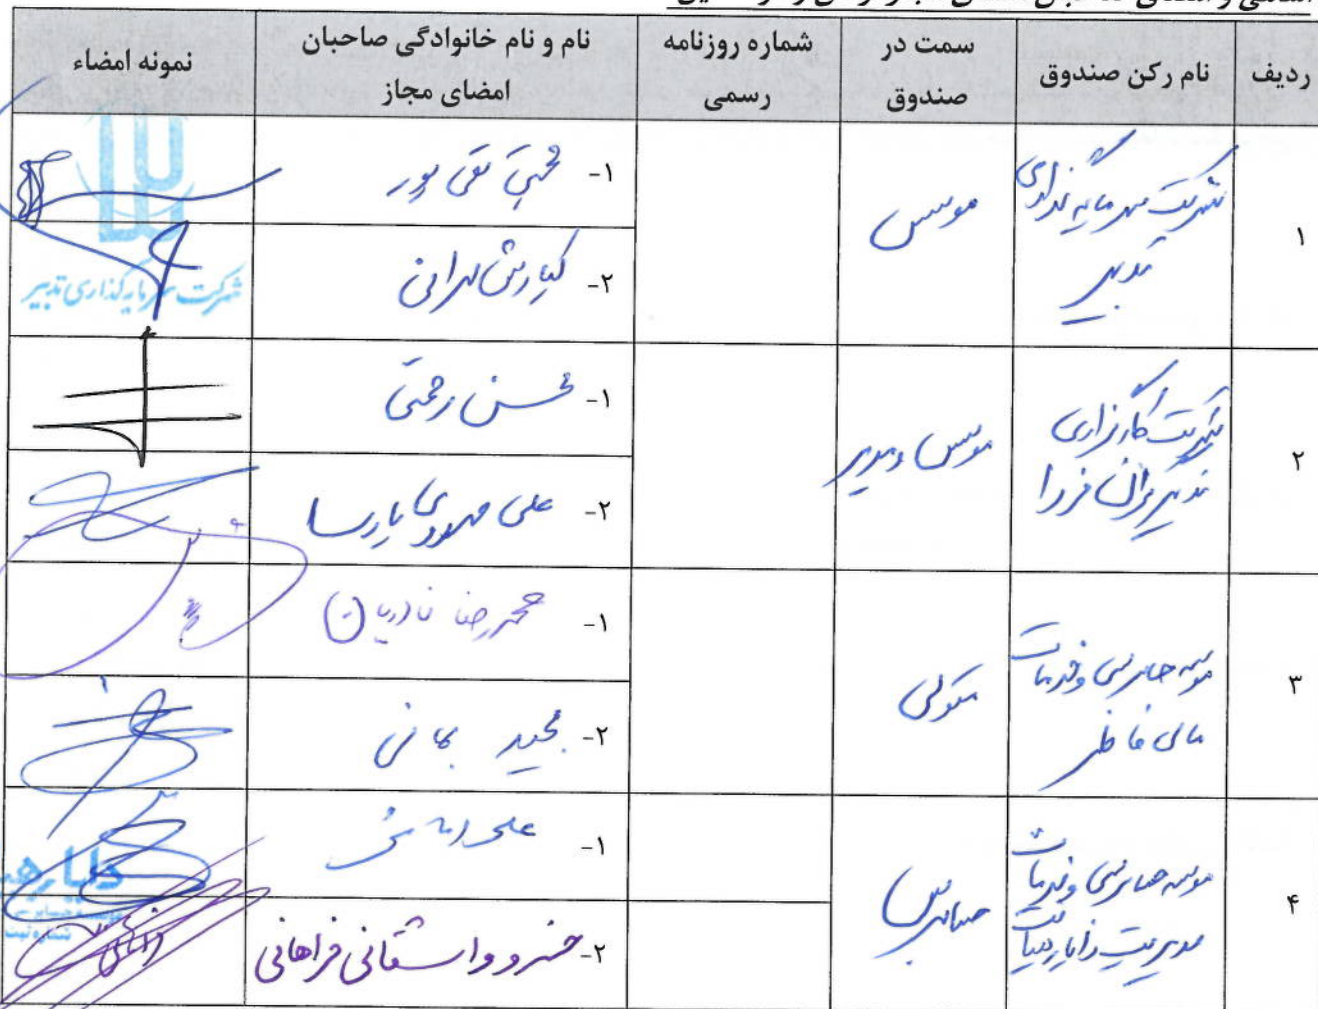 ردیف
نام رکن صندوق
سمت در
صندوق
شماره روزنامه
رسمی
نام و نام خانوادگی صاحبان
امضای مجاز
نمونه امضاء
۱
شرکت سرمایه گذاری
تدبیر
موسس
۱- مجتبی تقی پور
۲- کیارش مهرانی
شرکت سرمایه گذاری تدبیر
۲
شرکت کارگزاری
تدبیرگران فردا
موسس و مدیر
۱- محسن رحمتی
۲- علی مهدوی پارسا
۳
موسسه حسابرسی و خدمات
مالی فاطر
متولی
۱- محمدرضا نادریان
۲- مجید
۴
موسسه حسابرسی و خدمات
مدیریت
حسابرس
۱-
۲- خسرو واشقانی فراهانی
شماره ثبت